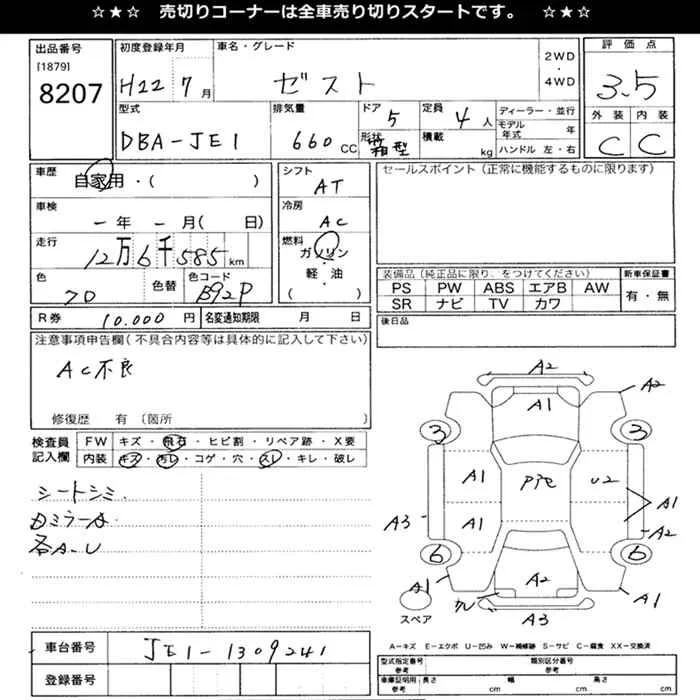 ☆★☆　売切りコーナーは全車売り切りスタートです。　☆★☆
出品番号 [1879] 8207
初度登録年月 H22 7月
車名・グレード ゼスト
2WD・4WD
評価点 3.5
型式 DBA-JE1
排気量 660 CC
ドア 5
形状 箱型
定員 4人
積載 kg
ディーラー・並行
モデル年式 年
ハンドル 左・右
外装 内装
C C
車歴 自家用・( )
シフト AT
セールスポイント（正常に機能するものに限ります）
車検 －年 －月( 日)
冷房 AC
走行 12万6千585km
燃料 ガソリン・軽油 ( )
色 色替 色コード B92P
装備品（純正品に限り、をつけてください）
新車保証書 有・無
PS PW ABS エアB AW
SR ナビ TV カワ
R券 10.000円 名変通知期限 月 日
後日品
注意事項申告欄（不具合内容等は具体的に記入して下さい）
AC不良
修復歴 有（箇所 ）
検査員記入欄
FW キズ・飛石・ヒビ割・リペア跡・X要
内装 キズ・汚レ・コゲ・穴・スレ・キレ・破レ
シートシミ
各A-U
A2
A1 A2
3 3
A1 U2
A1 A1
A3 A2
6 6
A2
A1 A1
A3
スペア
A－キズ E－エクボ U－凹み W－補修跡 S－サビ C－腐食 XX－交換済
車台番号 JE1-1309241
登録番号
型式指定番号 参考 類別区分番号 参考
車庫証明用 参考 長さ cm 幅 cm 高さ cm